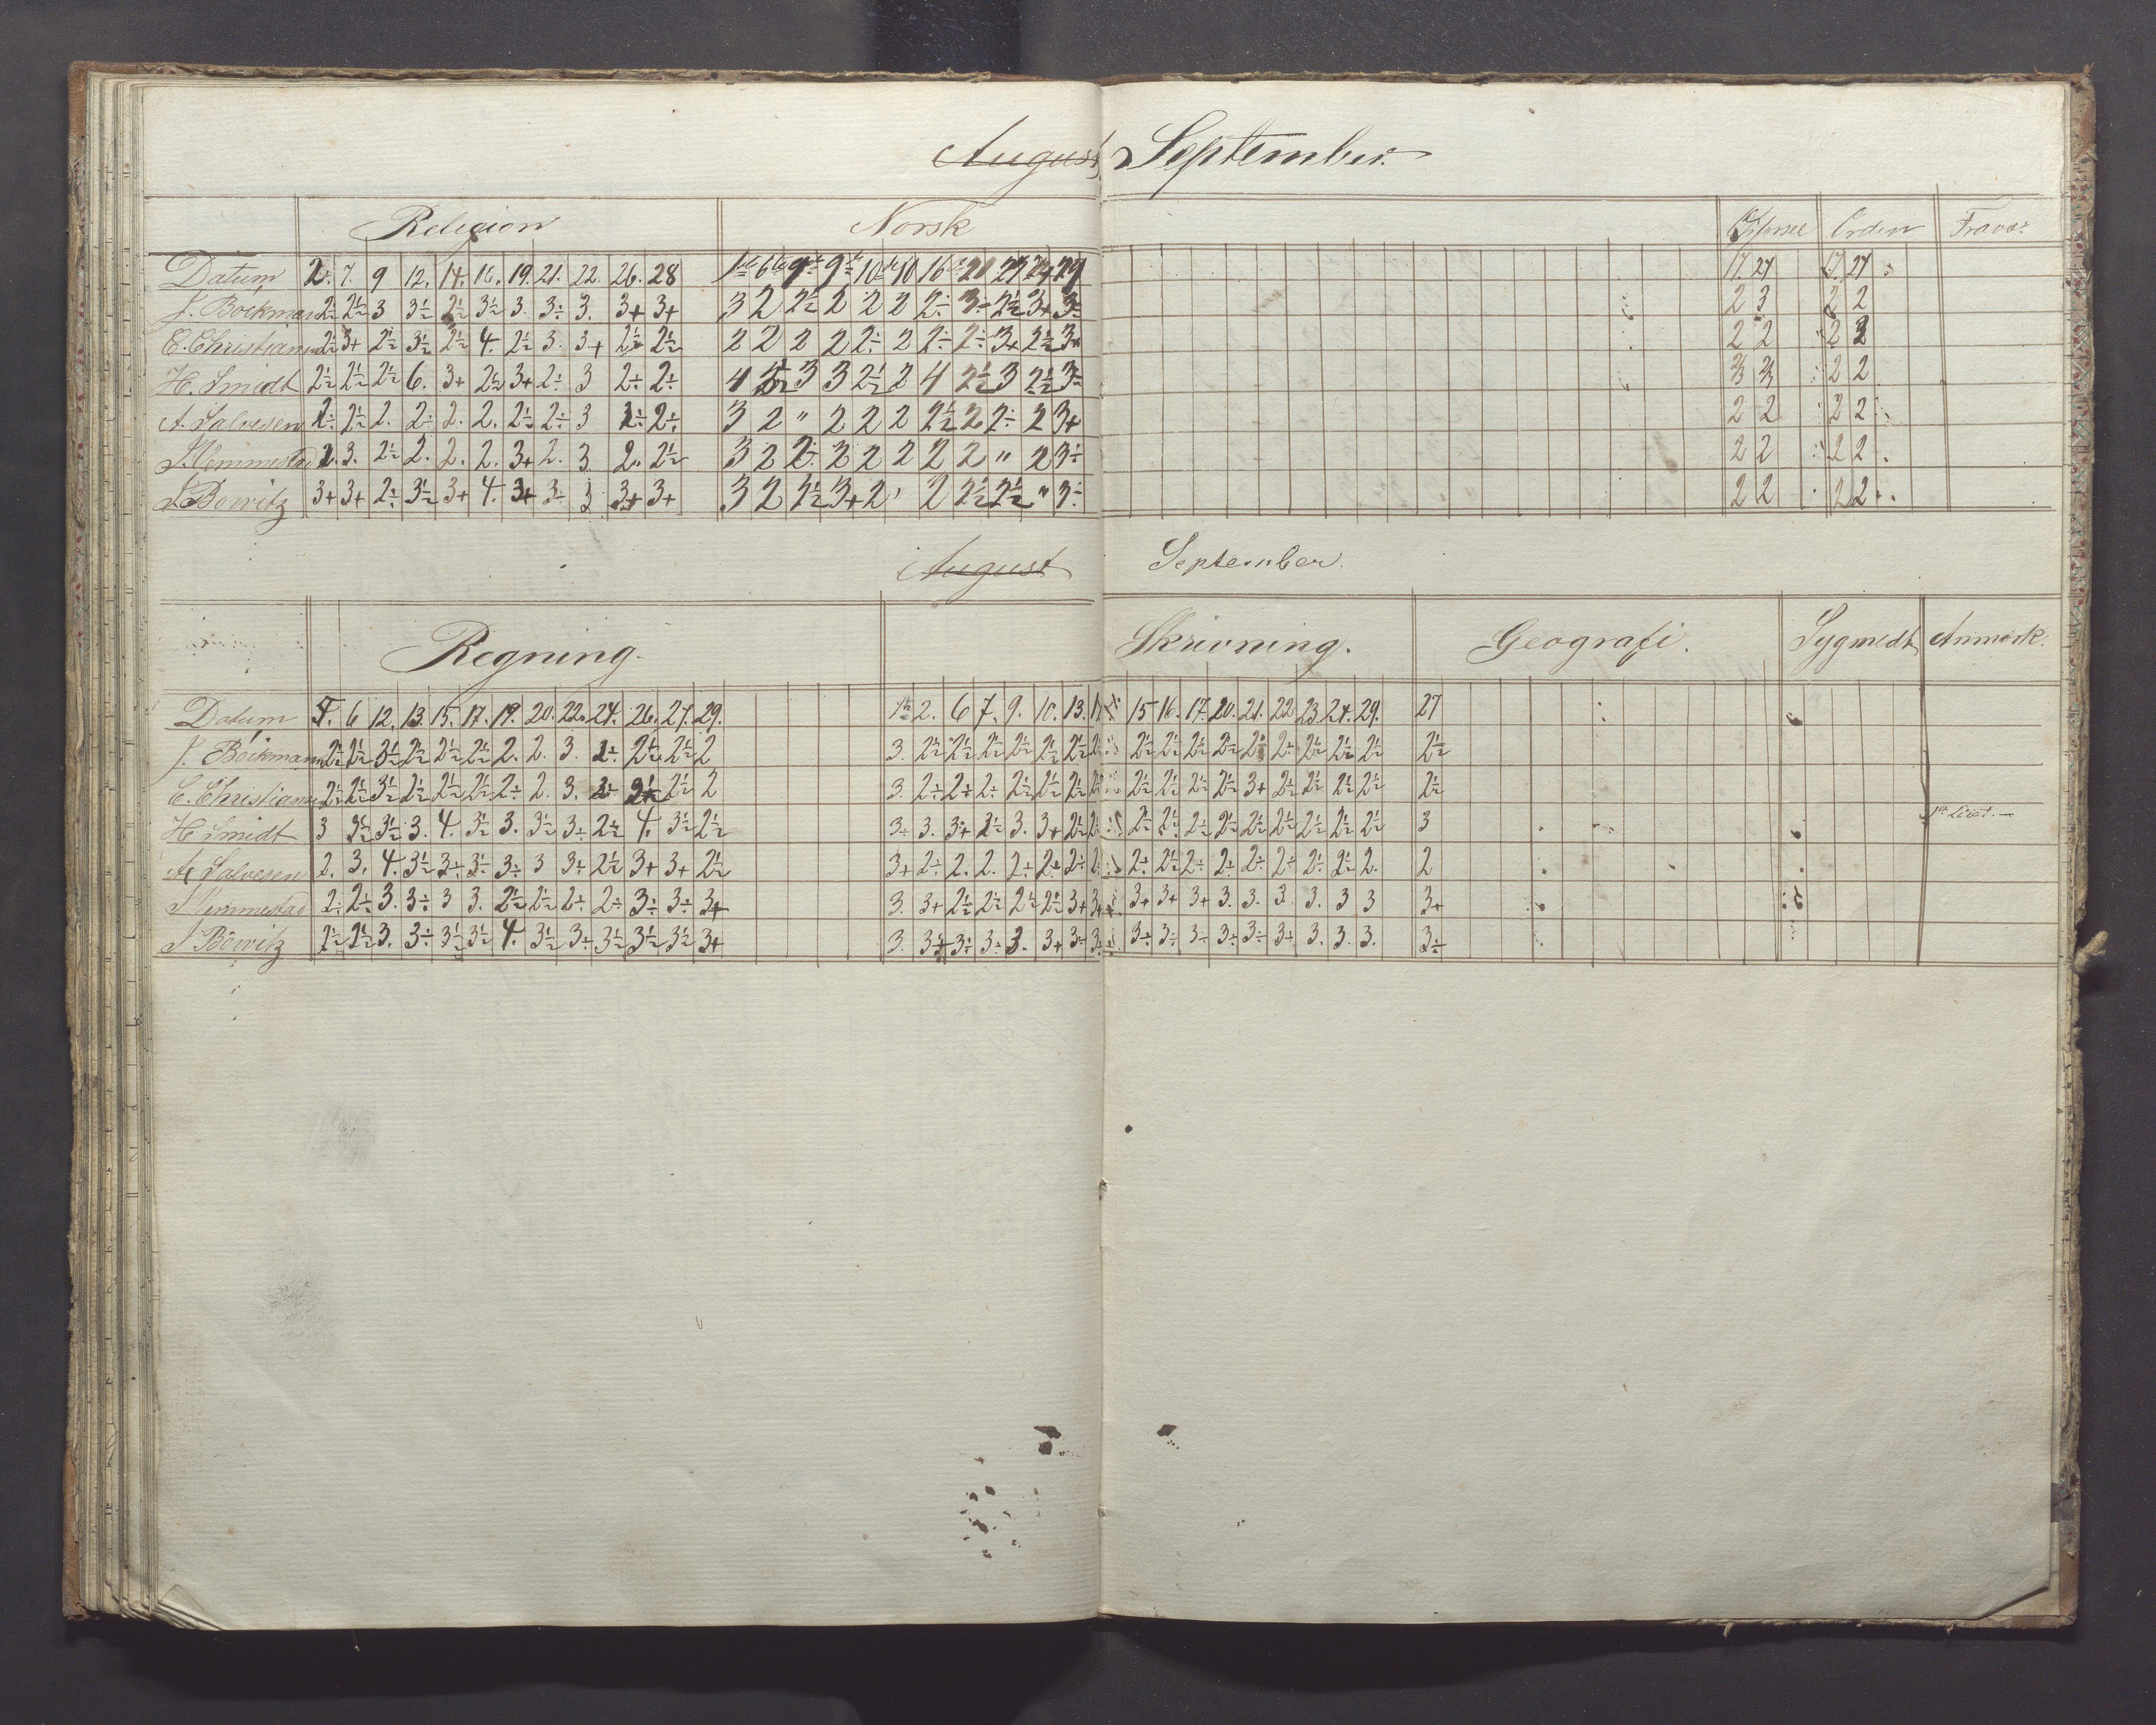 August September.
Religion Norsk Orden
Datum 2. 7. 9 12. 14. 16. 19. 21. 22. 26. 28 17. 27 17. 27
J. Böckman 2÷ 2½ 3 3½ 2½ 3½ 3. 3÷ 3. 3+ 3+ 3 2 2½ 2 2 2 2÷ 3÷ 2½ 3+ 3÷ 2 3 2 2
E. Christiansen 2½ 3+ 2½ 3½ 2½ 4. 2½ 3. 3+ 2½ 2½ 2 2 2 2 2÷ 2 2÷ 2÷ 3+ 2½ 3+ 2 2 2 3
H. Smidt 2½ 2½ 2½ 6. 3+ 2½ 3+ 2÷ 3 2÷ 2÷ 4 2½ 3 3 2½ 2 4 2½ 3 2½ 3÷ 3 3 2 2
A. Salvesen 2÷ 2½ 2. 2÷ 2. 2. 2½ 2÷ 3 2÷ 2÷ 3 2 " 2 2 2 2½ 2 2÷ 2 3+ 2 2 2 2
J. Vemmestad 2. 3. 2½ 2. 2. 2. 3+ 2. 3. 2. 2½ 3 2 2÷ 2 2 2 2 2 " 2 3÷ 2 2 2 2
J. Bowitz 3+ 3+ 2÷ 3½ 3+ 4. 3+ 3÷ 3 3+ 3+ 3 2 2½ 3+ 2 " 2 2½ 2½ " 3÷ 2 2 2 2
August September.
Regning. Skrivning. Geografi. Sygmeldt Anmærk.
Datum 5. 6 12. 13. 15. 17. 19. 20. 22. 24. 26. 27. 29. 1ste 2. 6 7. 9. 10. 13. 15 16. 17. 20. 21. 22 23. 24. 29. 27
J. Böckman 2½ 2½ 3½ 2½ 2½ 2½ 2. 2. 3. 2÷ 2½ 2½ 2 3. 2½ 2½ 2½ 2½ 2½ 2½ 2½ 2½ 2½ 2½ 2½ 2÷ 2½ 2½ 2½ 2½
E. Christiansen 2½ 2½ 3½ 2½ 2½ 2½ 2÷ 2. 3. 2÷ 2½ 2½ 2 3. 2÷ 2÷ 2÷ 2½ 2½ 2½ 2½ 2½ 2½ 2½ 3+ 2½ 2½ 2½ 2½ 2½
H. Smidt 3 3½ 3½ 3. 4. 3½ 3. 3½ 3÷ 2½ 4. 3½ 2½ 3÷ 3. 3+ 2½ 3. 3+ 2½ 2½ 2½ 2½ 2½ 2½ 2½ 2½ 2½ 2½ 3
A. Salvesen 2. 3. 4. 3½ 3÷ 3÷ 3÷ 3 3÷ 2½ 3+ 3+ 2½ 3+ 2÷ 2. 2. 2÷ 2÷ 2÷ 2÷ 2½ 2÷ 2÷ 2÷ 2÷ 2÷ 2½ 2. 2
J. Vemmestad 2÷ 2÷ 3. 3÷ 3 3. 2½ 2½ 2÷ 2÷ 3÷ 3÷ 3+ 3. 3+ 2½ 2½ 2½ 2½ 3+ 3+ 3+ 3+ 3. 3. 3. 3. 3 3 3+
J. Böwitz 2½ 2½ 3. 3÷ 3½ 3½ 4. 3½ 3÷ 3½ 3½ 3½ 3+ 3. 3+ 3÷ 3÷ 3. 3+ 3÷ 3÷ 3÷ 3÷ 3÷ 3÷ 3+ 3. 3. 3. 3÷